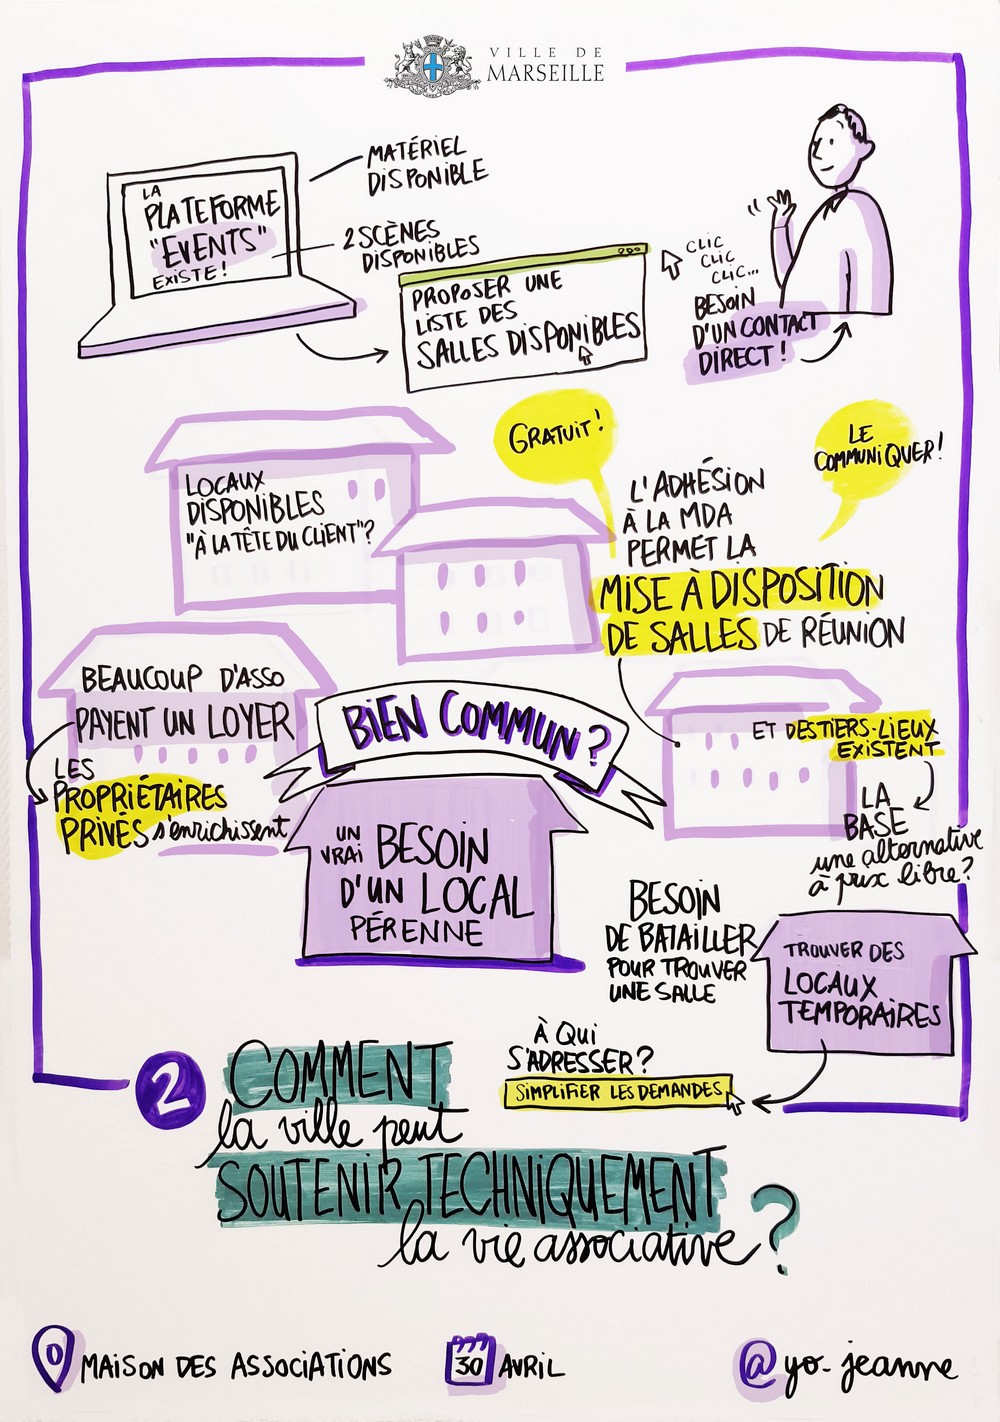 VILLE DE
MARSEILLE
LA
PLATEFORME
"EVENTS"
EXISTE!
MATÉRIEL
DISPONIBLE
2 SCÈNES
DISPONIBLES
PROPOSER UNE
LISTE DES
SALLES DISPONIBLES
CLIC
CLIC
CLIC...
BESOIN
D'UN CONTACT
DIRECT!
LOCAUX
DISPONIBLES
"À LA TÊTE DU CLIENT"?
GRATUIT!
LE
COMMUNIQUER!
L'ADHÉSION
À LA MDA
PERMET LA
MISE À DISPOSITION
DE SALLES DE RÉUNION
BEAUCOUP D'ASSO
PAYENT UN LOYER
LES
PROPRIÉTAIRES
PRIVÉS s'enrichissent
BIEN COMMUN?
UN
VRAI BESOIN
D'UN LOCAL
PÉRENNE
ET DES TIERS-LIEUX
EXISTENT
LA
BASE
une alternative
à prix libre?
BESOIN
DE BATAILLER
POUR TROUVER
UNE SALLE
TROUVER DES
LOCAUX
TEMPORAIRES
À QUI
S'ADRESSER?
SIMPLIFIER LES DEMANDES
2 COMMENT
la ville peut
SOUTENIR TECHNIQUEMENT
la vie associative?
MAISON DES ASSOCIATIONS
30 AVRIL
@yo-jeanne